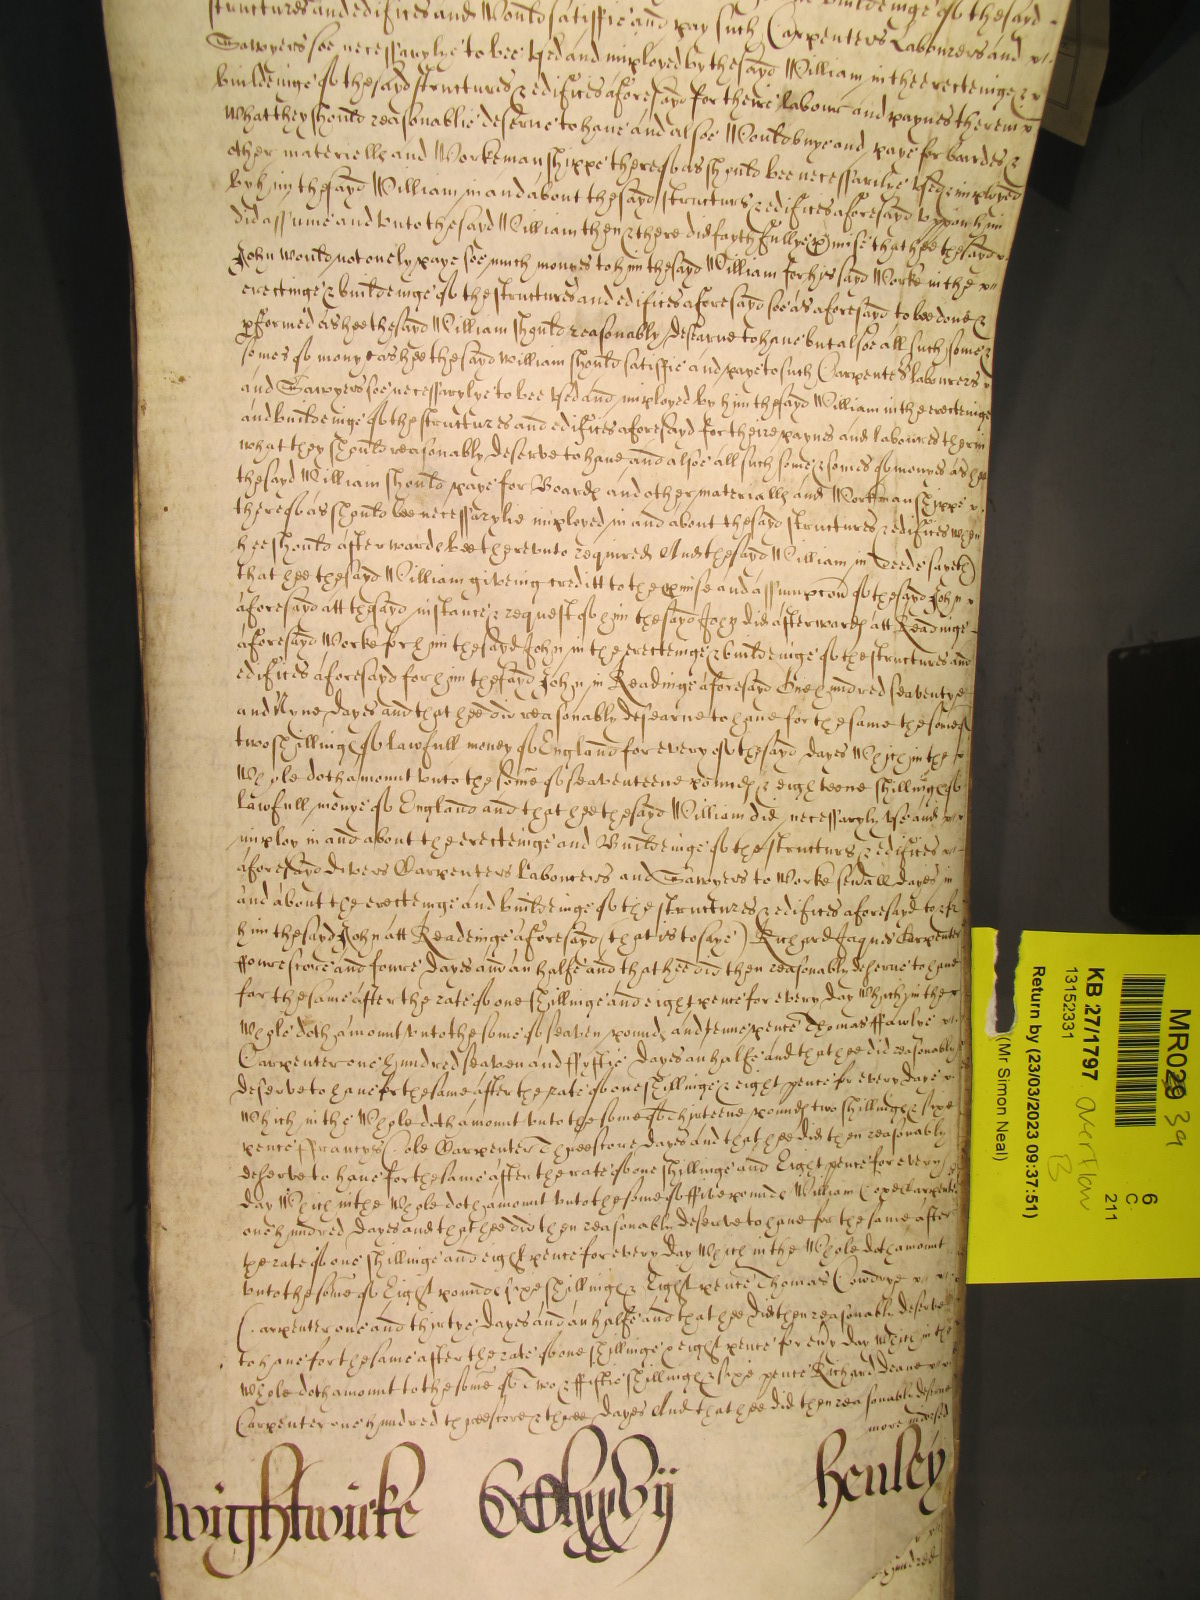 structures and edifices and Would satisfie and pay such Carpenters Labourers and
Sawyers soe necessarylie to bee Used and imployed by the sayd William in the erecteinge &
buildeinge of the sayd structures & edifices aforesayd for theire labour and paynes therein
What they should reasonablie deserve to have and alsoe Would buye and paye for bardes &
other materialls and Workemanshippe thereof as should bee necessarilye Used & imployed
by him the sayd William in and about the sayd structures & edifices aforesayd uppon him
did assume and unto the sayd William then & there did faythfullye pmise that hee the sayd
John would not onely paye soe much monyes to him the sayd William for his sayd Worke in the
erectinge & buildeinge of the structures and edifices aforesayd soe as aforesayd to bee done &
pformed as hee the sayd William should reasonably deserve to have but alsoe all such some &
somes of mony as hee the sayd William should satisfie and paye to such Carpenters labourers
and Sawyers soe necessarylye to bee Used and imployed by him the sayd William in the erecteinge
and buildeinge of the structures and edifices aforesayd for theire paynes and labours therin
what they should reasonably deserve to have and alsoe all such some & somes of monyes as hee
the sayd William should paye for Boards and other materialls and Workmanshippe
thereof as should bee necessarylie imployed in and about the sayd structures & edifices when
hee should afterwards bee thereunto required And the sayd William in Deede sayeth
that hee the sayd William giveing creditt to the pmise and assumpcon of the sayd John
aforesayd att the sayd instance & request of him the sayd John did afterwards att Readinge
aforesayd Worke for him the sayd John in the erecteinge & buildeinge of the structures and
edifices aforesayd for him the sayd John in Readinge aforesayd One hundred seaventye
and Nyne dayes and that hee did reasonably deserve to have for the same the some of
two shillings of lawfull money of England for every of the sayd dayes Which in the
Whole doth amount unto the some of seaventeene pounds & eighteene shillings of
Lawfull monye of England and that hee the sayd William did necessaryly Use and
imploy in and about the erecteinge and Buildeinge of the structurs & edifices
aforesayd divers Carpenters Labourers and Sawyers to Worke sevall dayes in
and about the erecteinge and buildeinge of the structures & edifices aforesayd
him the sayd John att Readeinge aforesayd (that is to saye) Richard Jaques Carpenter
ffourescore and foure dayes and an halfe and that hee did then reasonably deserve to have
for the same after the rate of one shillinge and eight pence for every day Which in the
Whole doth amount unto the some of seaven pounds and tenne pence Thomas ffawlye
Carpenter one hundred seaven and ffyftie dayes an halfe and that hee did reasonablie
deserve to have for the same after the rate of one shillinge & eight pence for every daye
Which in the Whole doth amount unto the some of thirteene pounds two shillings & sixe
pence ffrancys Cole Carpenter Threescore dayes and that hee did then reasonably
deserve to have for the same after the rate of one shillinge and Eight pence for every
day Which in the Whole doth amount unto the some of ffive pounds William Cope Carpenter
one hundred dayes and that hee did then reasonably deserve to have for the same after
the rate of one shillinge and eight pence for every day Which in the Whole doth amount
unto the some of Eight pounds sixe shillings & Eight pence Thomas Cowdrye
Carpenter one and thirtye dayes and an halfe and that hee did then reasonably deserve
to have for the same after the rate of one shillinge & eight pence for evry day Which in the
Whole doth amount to the some of Two & ffiftie shillings & sixe pence Richard Deane
Carpenter one hundred threescore & three dayes And that hee did then reasonablie deserve
more indorsed
Wightwicke
Henley
hundred
MR029 39
6
C
211
KB 27/1797 overflow
B
13152331
Return by (23/03/2023 09:37:51)
(Mr Simon Neal)